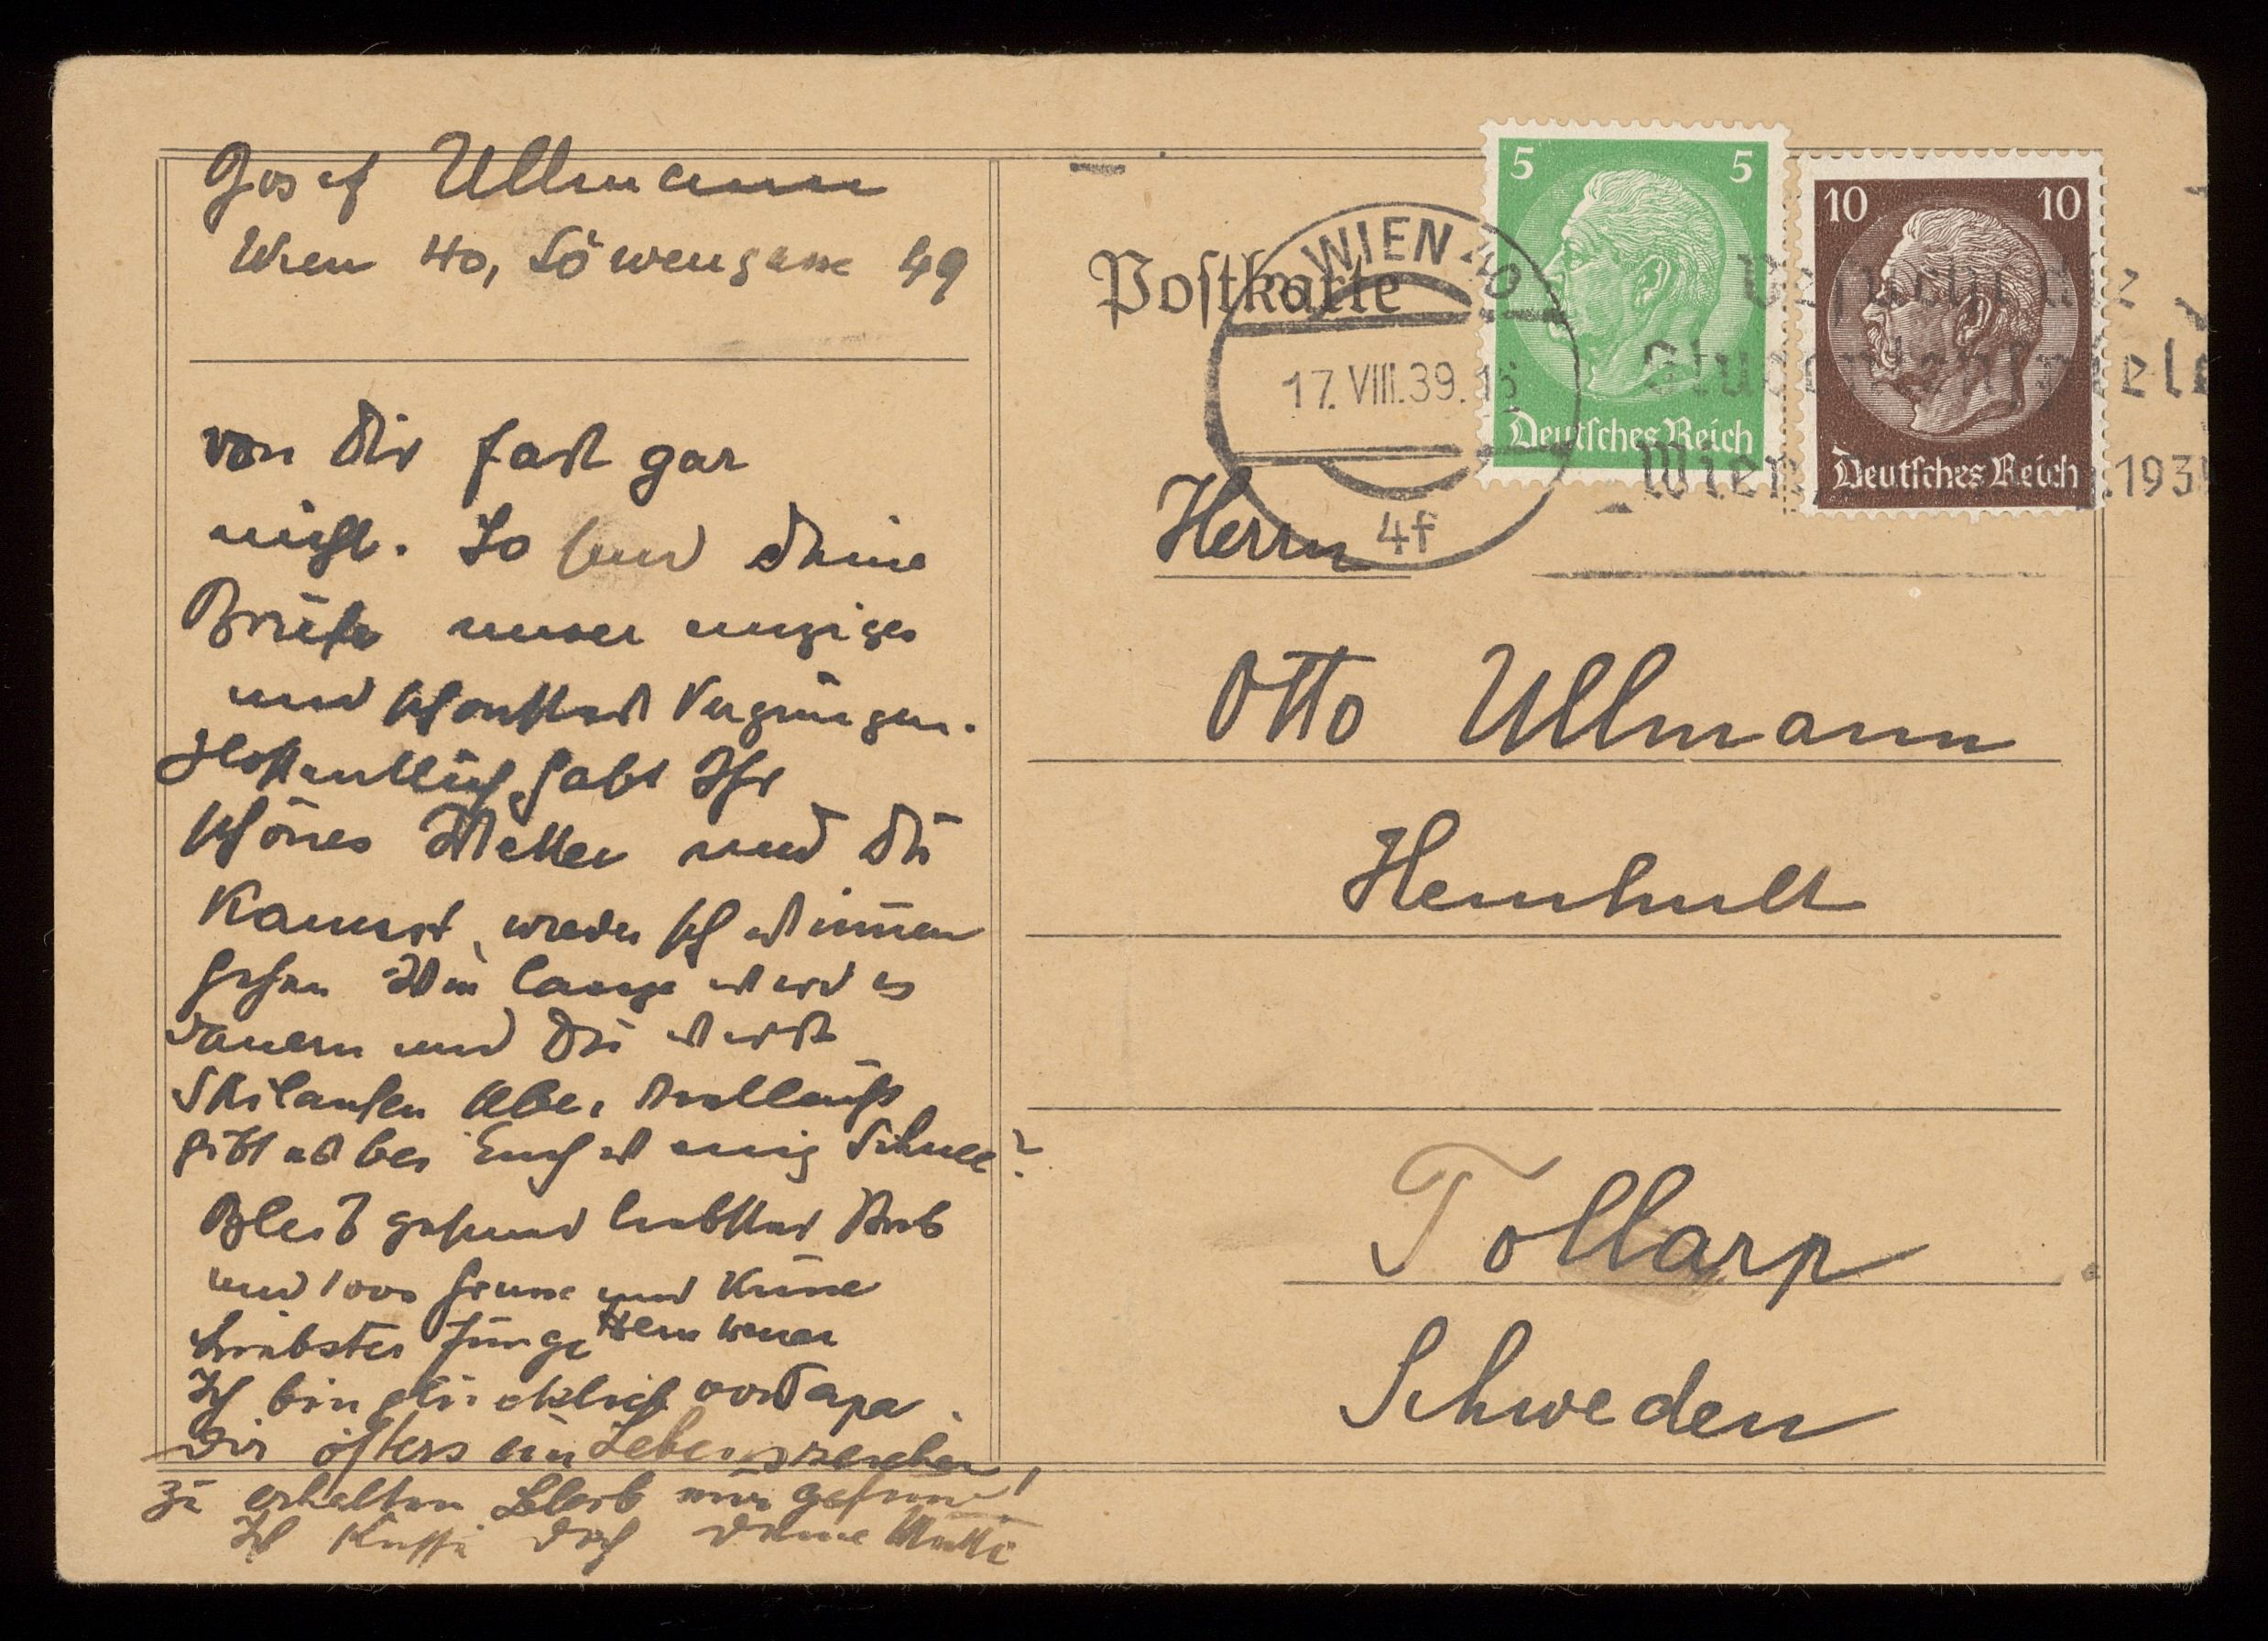 Josef Ullmann
Wien 40, Löwengasse 49
von Dir fast gar
nicht. So sind Deine
Briefe unser einziges
und schönstes Vergnügen.
Hoffentlich habt Ihr
schönes Wetter und Du
kannst wieder schwimmen
gehen Wie lange wird es
dauern und Du wirst
Skilaufen Aber vielleicht
gibt es bei Euch wenig Schnee?
Bleib gesund liebster Bub
und 1000 Grüsse und Küsse
Liebster Junge
Ich bin glücklich von Papa
Dir öfters ein Lebenszeichen
zu erhalten Bleib nur gesund!
Ich küsse Dich Deine Mutti
Postkarte
WIEN 40
17.VIII.39.
4f
5 5
Deutsches Reich
10 10
Deutsches Reich
Wien
Herrn
Otto Ullmann
Hemhult
Tollarp
Schweden